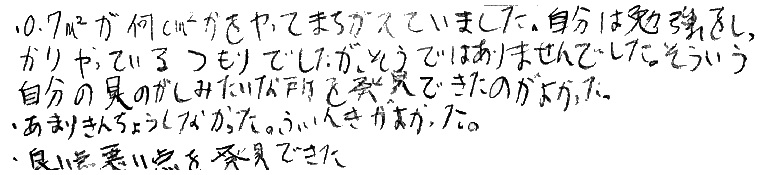 ・0.7m²が何cm²かをやってまちがえていました。自分は勉強をしっ
かりやっているつもりでしたが、そうではありませんでした。そういう
自分の見のがしみたいな所を発見できたのがよかった。
・あまりきんちょうしなかった。ふいんきがよかった。
・良い点悪い点を発見できた